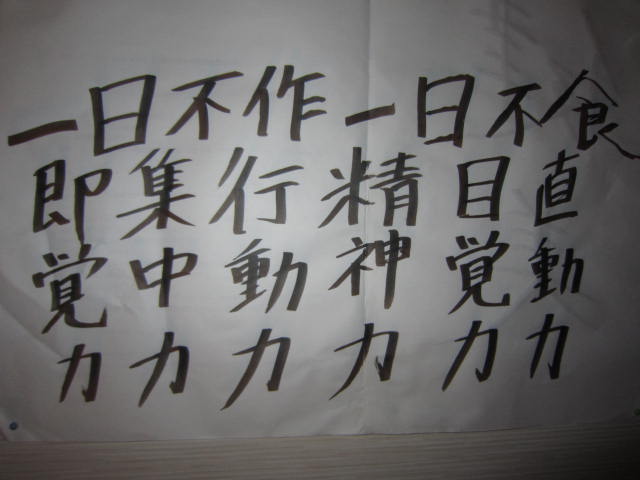 一日不作一日不食
即集行精目直
覚中動神覚動
力力力力力力